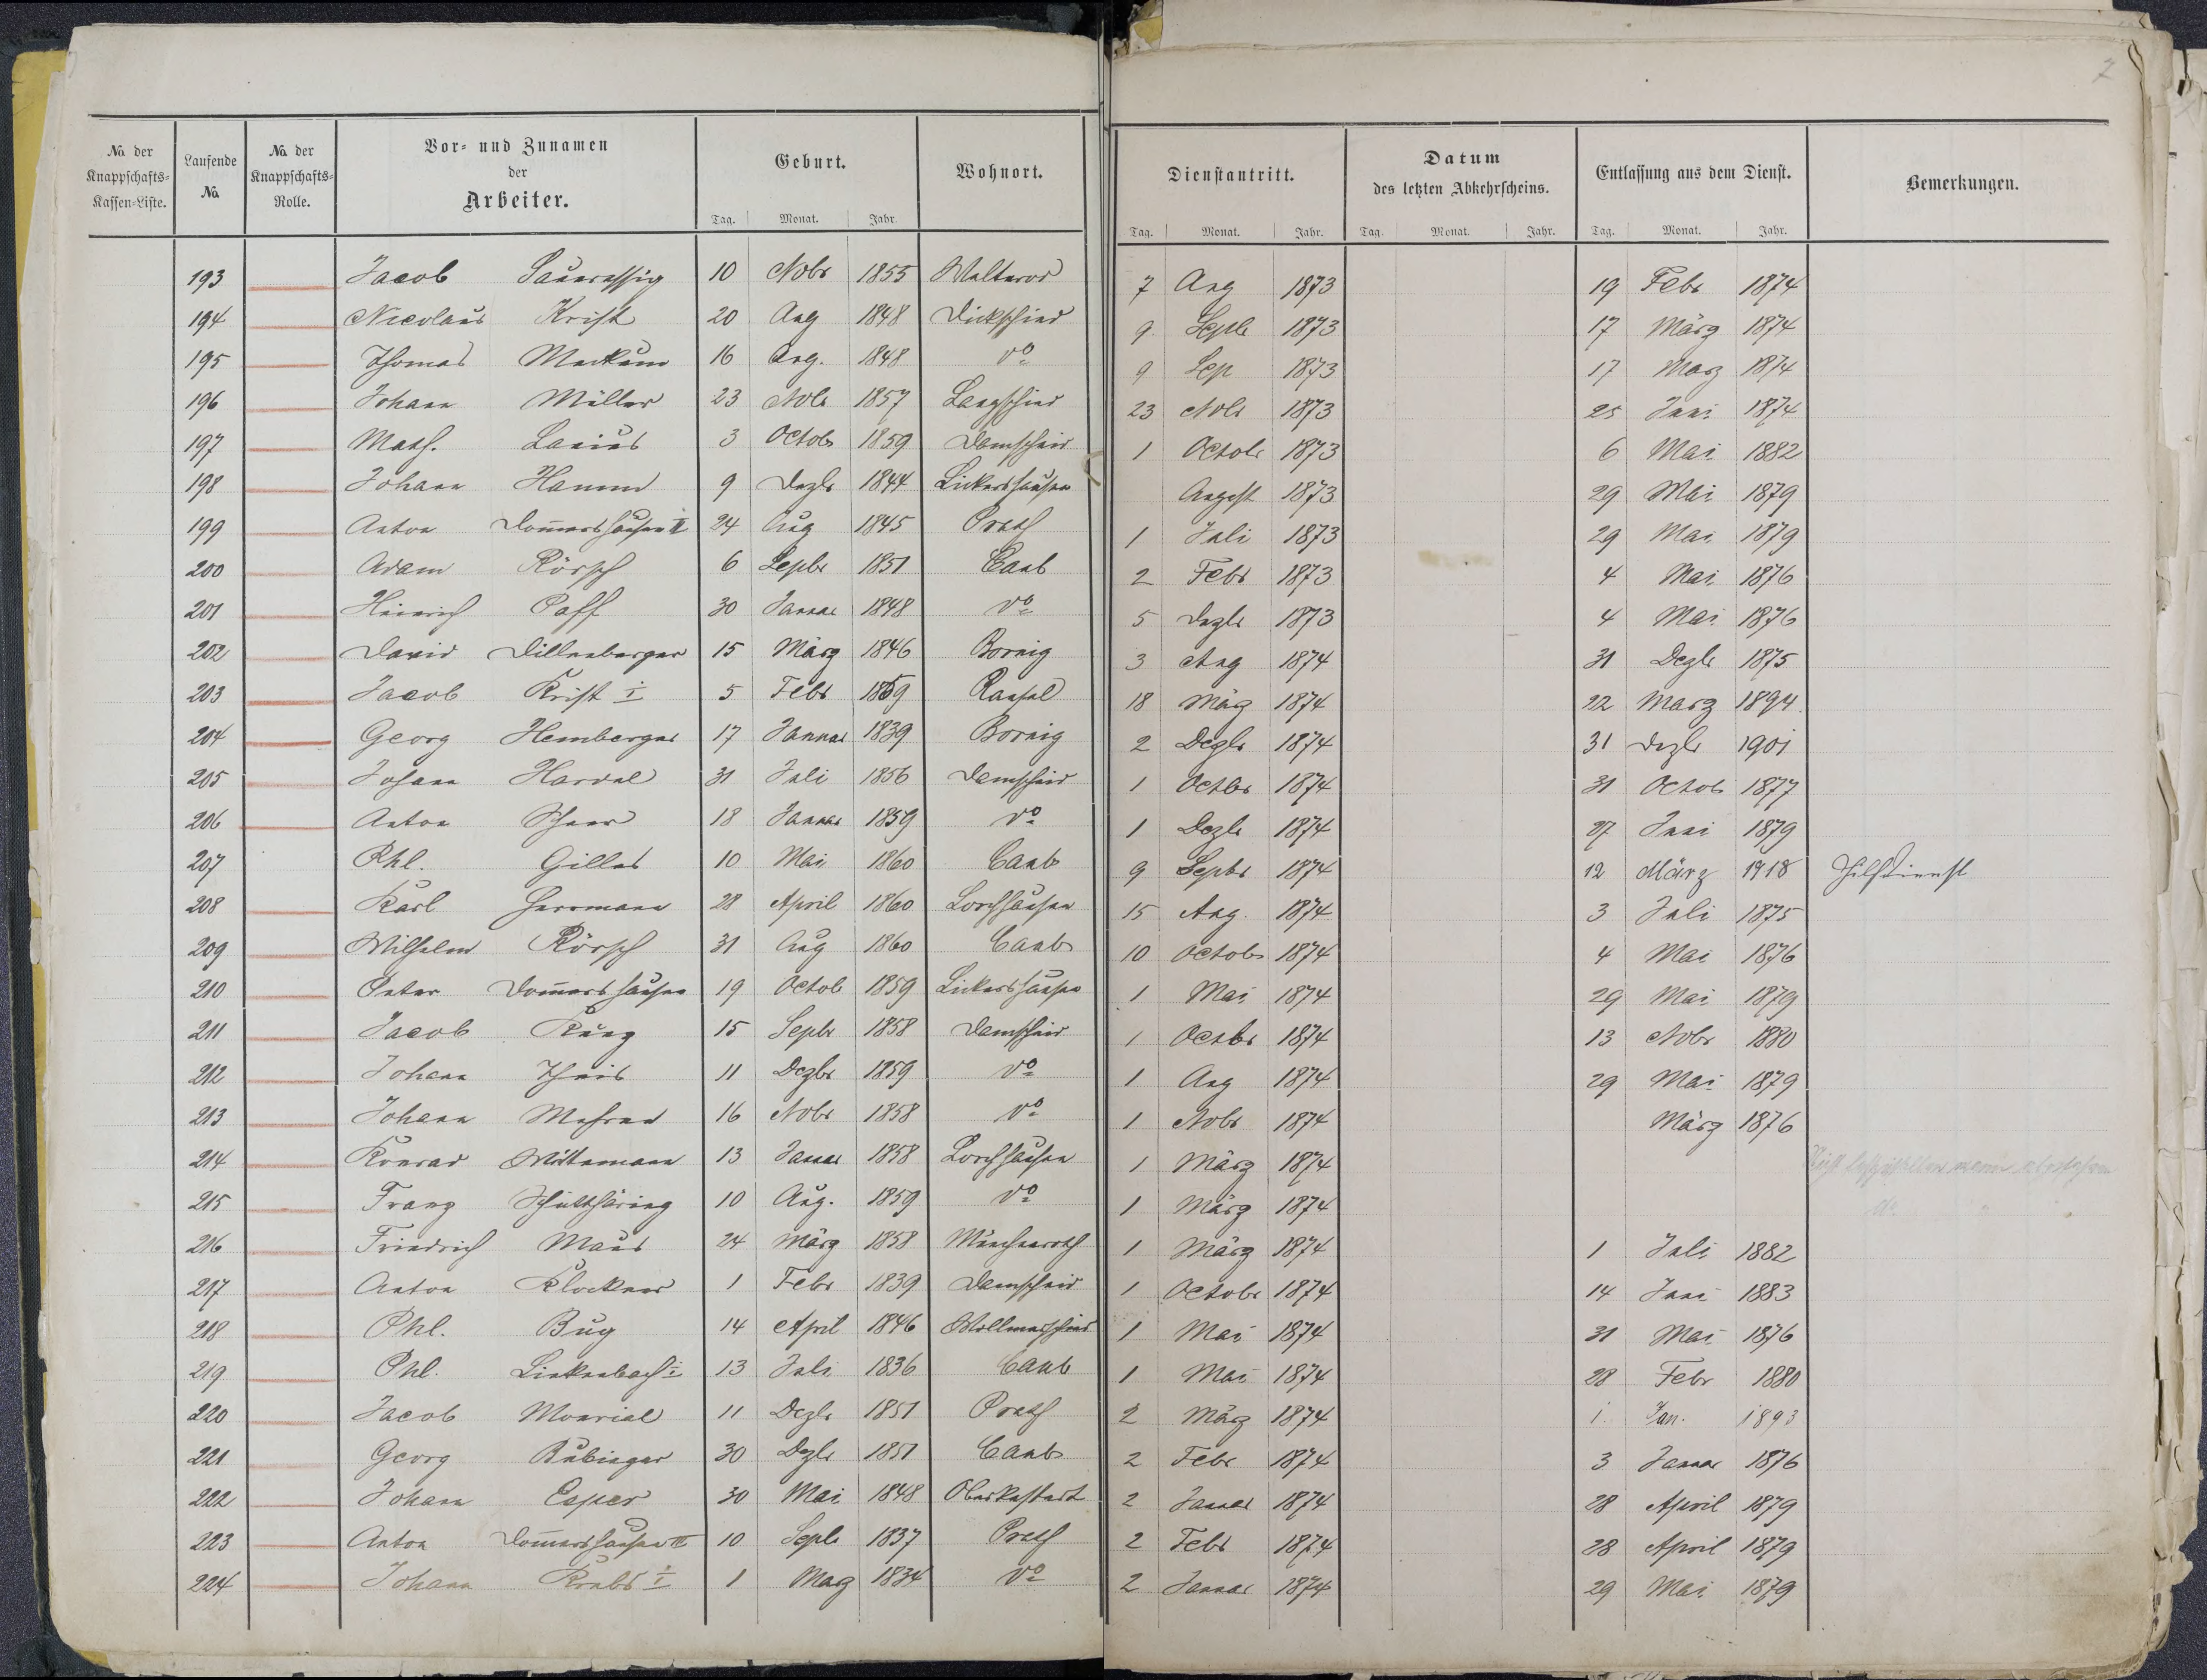 7
No. der Knappschafts-Kassen-Liste. Laufende No. No. der Knappschafts-Rolle. Vor- und Zunamen der Arbeiter. Geburt. Wohnort. Dienstantritt. Datum des letzten Abkehrscheins. Entlassung aus dem Dienst. Bemerkungen.
Tag. Monat. Jahr. Tag. Monat. Jahr. Tag. Monat. Jahr. Tag. Monat. Jahr.
193 Jacob Sauerassig 10 Nobr 1855 Welterod 7 Aug 1873 19 Febr 1874
194 Nicolaus Krist 20 Aug 1848 Dickschied 9 Septb 1873 17 März 1874
195 Thomas 16 Aug. 1848 do 9 Sep 1873 17 März 1874
196 Johann Müller 23 Nobr 1857 Langschied 23 Nobr 1873 25 Juni 1874
197 Math. Lanius 3 Octob 1859 Damscheid 1 Octobr 1873 6 Mai 1882
198 Johann Hamm 9 Dezbr 1844 Lickershausen August 1873 29 Mai 1879
199 Anton Dom̄ershausen II 24 Aug 1845 Prath 1 Juli 1873 29 Mai 1879
200 Adam Rörsch 6 Septbr 1851 Caub 2 Febr 1873 4 Mai 1876
201 Heinrich Paff 30 Januar 1848 do 5 Dezbr 1873 4 Mai 1876
202 David Dillenberger 15 März 1846 Bornig 3 Aug 1874 31 Dezbr 1875
203 Jacob Krist I 5 Febr 1859 Ransel 18 März 1874 22 März 1894
204 Georg Hemberger 17 Januar 1839 Bornig 2 Dezbr 1874 31 Dezbr 1901
205 Johann Hardel 31 Juli 1856 Damscheid 1 Octbr 1874 31 Octob 1877
206 Anton 18 Januar 1859 do 1 Dezbr 1874 27 Juni 1879
207 Phl. Gilles 10 Mai 1860 Caub 9 Septbr 1874 12 März 1918 Hilfsdienst
208 Karl Herrmann 28 April 1860 Lorchhausen 15 Aug. 1874 3 Juli 1875
209 Wilhelm Rörsch 31 Aug 1860 Caub 10 Octob 1874 4 Mai 1876
210 Peter Dom̄ershausen 19 Octob 1859 Lickershausen 1 Mai 1874 29 Mai 1879
211 Jacob Kunz 15 Septbr 1858 Damscheid 1 Octbr 1874 13 Nobr 1880
212 Johann Theis 11 Dezbr 1859 do 1 Aug 1874 29 Mai 1879
213 Johann 16 Nobr 1858 do 1 Nobr 1874 März 1876
214 Konrad Wittemann 13 Januar 1858 Lorchhausen 1 März 1874 Nicht festzustellen wann abgefahren
215 Franz 10 Aug. 1859 do 1 März 1874 do
216 Friedrich Maus 24 März 1858 Münchenroth 1 März 1874 1 Juli 1882
217 Anton Klockner 1 Febr 1839 Damscheid 1 Octobr 1874 14 Juni 1883
218 Phl. Bug 14 April 1846 Wollmerschied 1 Mai 1874 31 Mai 1876
219 Phl. Linkenbach I 13 Juli 1836 Caub 1 Mai 1874 28 Febr 1880
220 Jacob Monrial 11 Dezbr 1851 Prath 2 März 1874 1 Jan. 1893
221 Georg Bubinger 30 Dezbr 1851 Caub 2 Febr 1874 3 Januar 1876
222 Johann Esper 30 Mai 1848 Oberkestert 2 Januar 1874 28 April 1879
223 Anton Dom̄ershausen III 10 Septb 1837 Prath 2 Febr 1874 28 April 1879
224 Johann Krebs I 1 März 1834 do 2 Januar 1874 29 Mai 1879